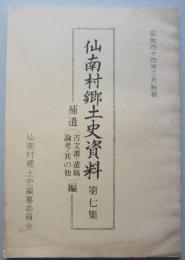 昭和四十四年三月脱稿
仙南村郷土史資料 第七集
補遺(古文書・遺稿 論考・其の他)編
仙南村郷土史編纂委員会